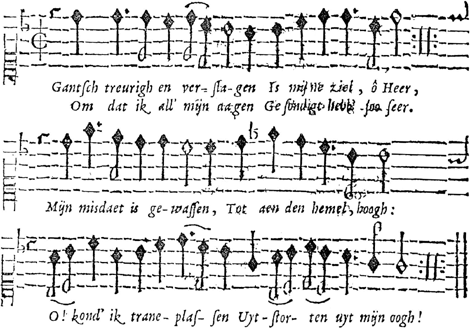 Gantsch treurigh en ver- sla- gen Is mijne ziel, ô Heer,
Om dat ik all' mijn dagen Gesondigt hebb' soo seer.
Mijn misdaet is ge- wassen, Tot aen den hemel, hoogh:
O! kond' ik trane- plas- sen Uyt- stor- ten uyt mijn oogh!